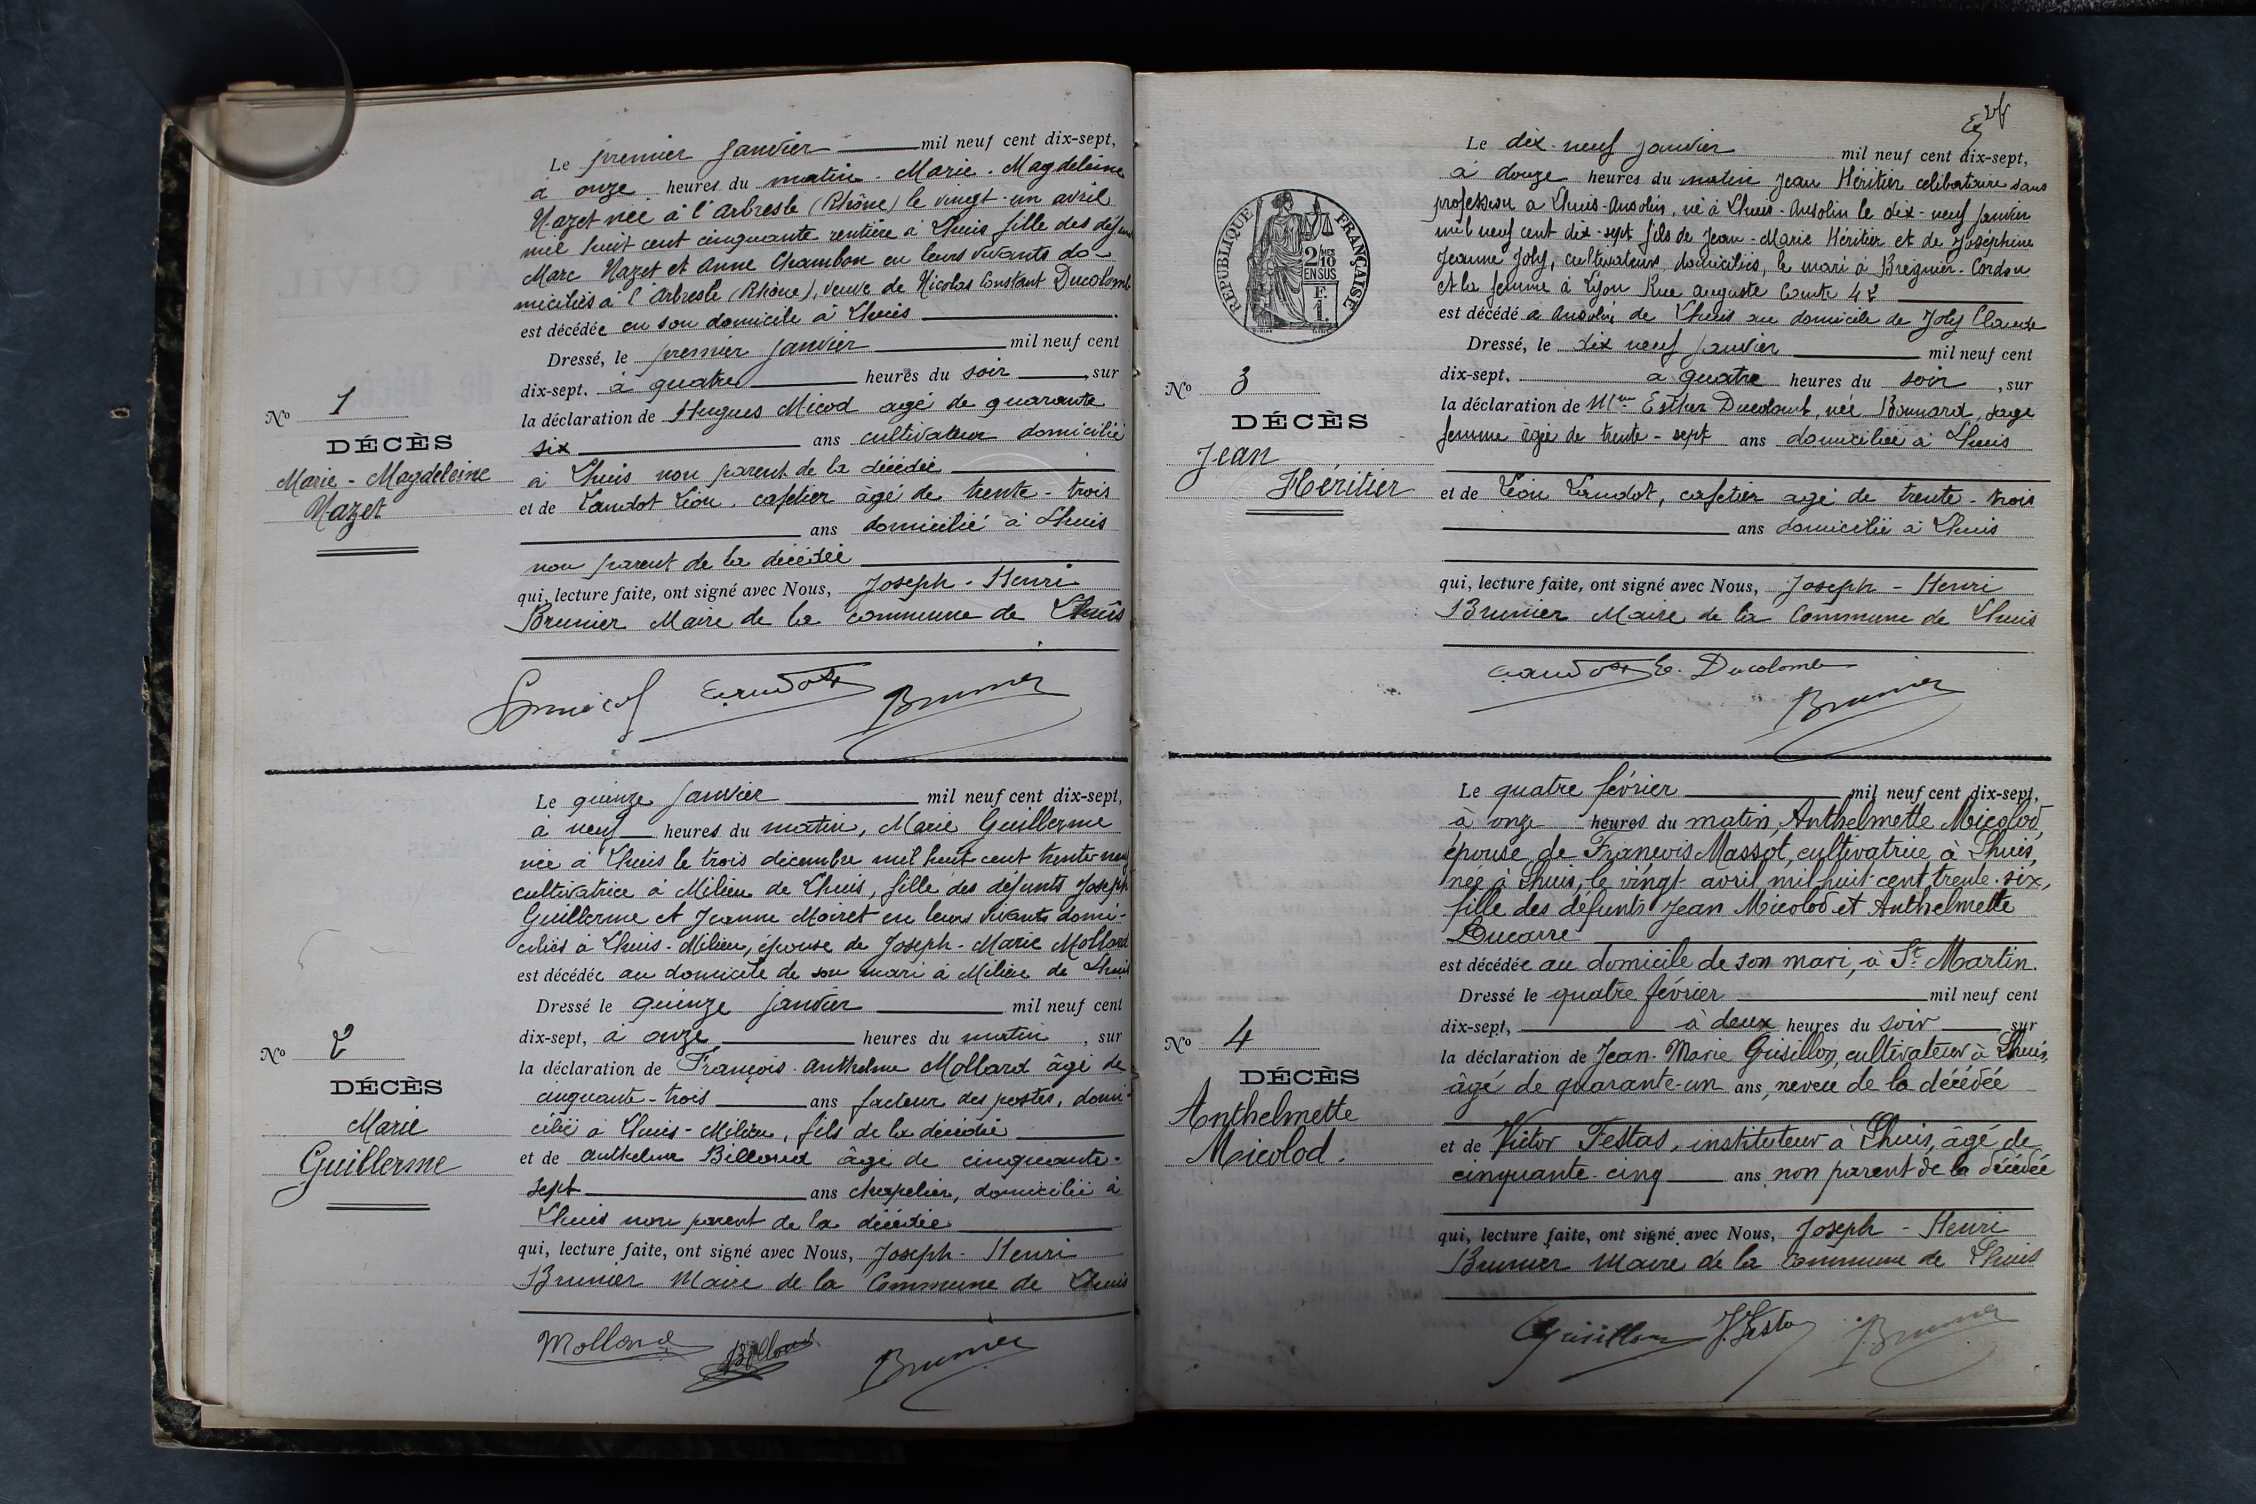 Le premier janvier mil neuf cent dix-sept,
à onze heures du matin. Marie-Magdeleine
Nazet née à l'Arbresle (Rhône) le vingt-un avril
mil huit cent cinquante rentière à Lhuis fille des défunts
Marc Nazet et Anne Chambon en leurs vivants do-
miciliés à l'Arbresle (Rhône), veuve de Nicolas Constant Ducolomb
est décédée en son domicile à Lhuis
Dressé, le premier janvier mil neuf cent
dix-sept, à quatre heures du soir, sur
la déclaration de Hugues Micod agé de quarante
six ans cultivateur domicilié
à Lhuis non parent de la décédée
et de Landot Léon, cafetier âgé de trente-trois
ans domicilié à Lhuis
non parent de la décédée
qui, lecture faite, ont signé avec Nous, Joseph-Henri
Brunier Maire de la commune de Lhuis
No 1
DÉCÈS
Marie-Magdeleine
Nazet
Brunier
Le quinze janvier mil neuf cent dix-sept,
à neuf heures du matin, Marie Guillerme
née à Lhuis le trois décembre mil huit cent trente neuf
cultivatrice à Milieu de Lhuis, fille des défunts Joseph
Guillerme et Jeanne Moiret en leurs vivants domi-
ciliés à Lhuis-Milieu, épouse de Joseph-Marie Mollard
est décédée au domicile de son mari à Milieu de Lhuis
Dressé le quinze janvier mil neuf cent
dix-sept, à onze heures du matin, sur
la déclaration de François-Anthelme Mollard âgé de
cinquante-trois ans facteur des postes, domi-
cilié à Lhuis-Milieu, fils de la décédée
et de Anthelme Billoud âgé de cinquante-
sept ans chapelier, domicilié à
Lhuis non parent de la décédée
qui, lecture faite, ont signé avec Nous, Joseph-Henri
Brunier Maire de la Commune de Lhuis
No 2
DÉCÈS
Marie
Guillerme
Mollard Billoud Brunier
RÉPUBLIQUE FRANÇAISE
2/10 EN SUS
F. 1.
Le dix-neuf janvier mil neuf cent dix-sept,
à douze heures du matin Jean Héritier célibataire sans
profession à Lhuis-Ansolin, né à Lhuis-Ansolin le dix-neuf janvier
mil neuf cent dix-sept fils de Jean-Marie Héritier et de Joséphine
Jeanne Joly, cultivateurs domiciliés, le mari à Brégnier-Cordon
et la femme à Lyon Rue Auguste Comte 42
est décédé à Ansolin de Lhuis au domicile de Joly Claude
Dressé, le dix neuf janvier mil neuf cent
dix-sept, à quatre heures du soir, sur
la déclaration de Mme Esther Ducolomb, née Bonnard, sage
femme âgée de trente-sept ans domiciliée à Lhuis
et de Léon Landot, cafetier agé de trente-trois
ans domicilié à Lhuis
qui, lecture faite, ont signé avec Nous, Joseph-Henri
Brunier Maire de la Commune de Lhuis
No 3
DÉCÈS
Jean
Héritier
Landot E. Ducolomb
Brunier
Le quatre février mil neuf cent dix-sept,
à onze heures du matin, Anthelmette Micolod,
épouse de François Massot, cultivatrice à Lhuis,
née à Lhuis, le vingt avril mil huit cent trente-six,
fille des défunts Jean Micolod et Anthelmette
Ducarre
est décédée au domicile de son mari, à St Martin.
Dressé le quatre février mil neuf cent
dix-sept, à deux heures du soir sur
la déclaration de Jean-Marie Grisillon, cultivateur à Lhuis,
âgé de quarante-un ans, neveu de la décédée
et de Victor Testas, instituteur à Lhuis, âgé de
cinquante-cinq ans, non parent de la décédée
qui, lecture faite, ont signé avec Nous, Joseph-Henri
Brunier Maire de la Commune de Lhuis
No 4
DÉCÈS
Anthelmette
Micolod.
Grisillon V. Testas Brunier